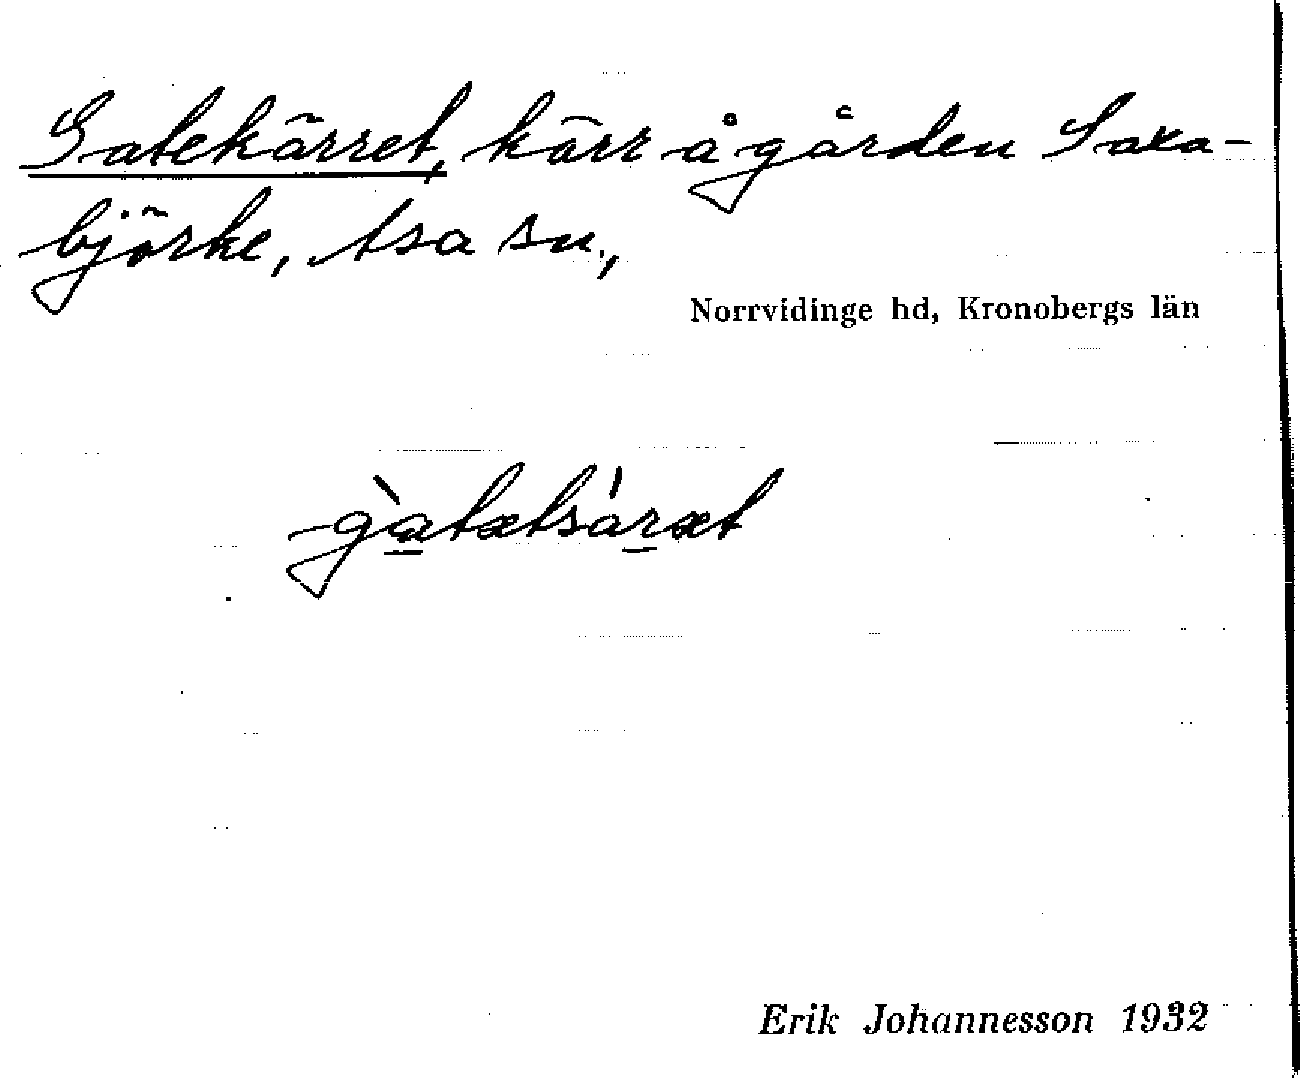 Gatekärret, kärr å gården Saxa-
björke, Asa sn.,
Norrvidinge hd, Kronobergs län
Erik Johannesson 1932